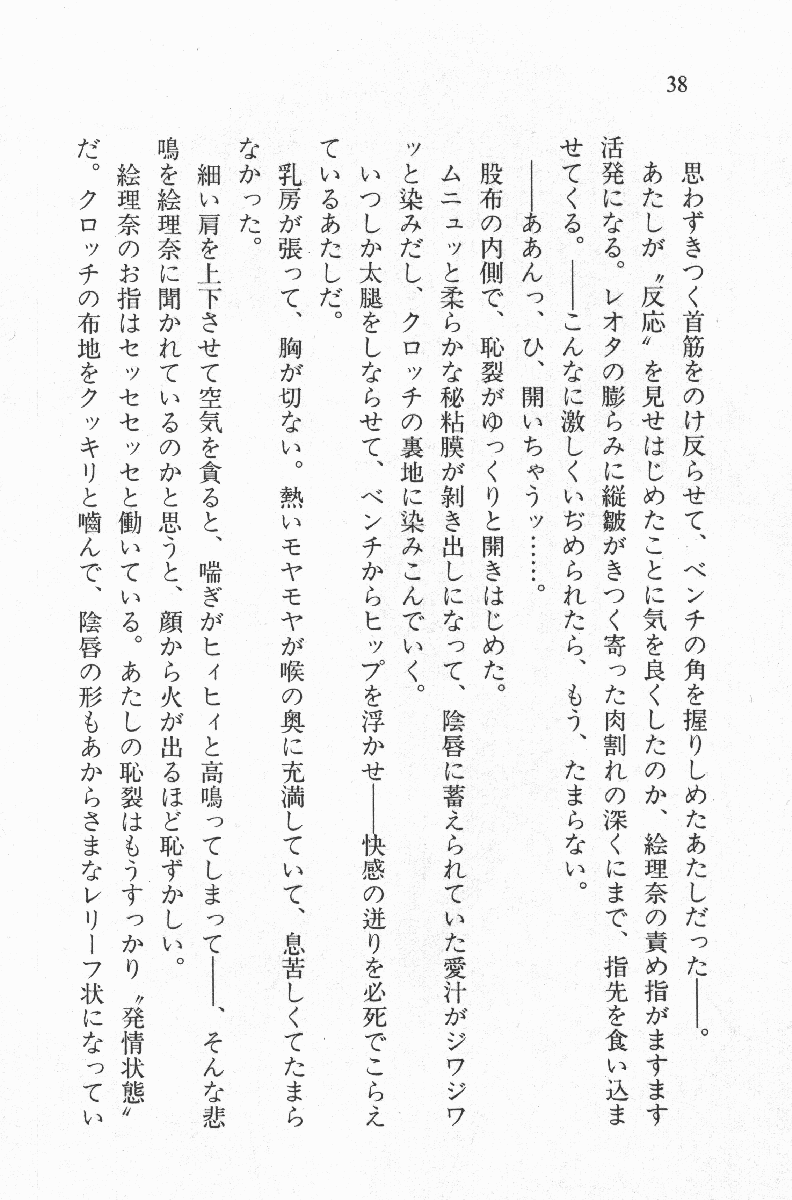 38
思わずきつく首筋をのけ反らせて、ベンチの角を握りしめたあたしだった――。
あたしが〝反応〟を見せはじめたことに気を良くしたのか、絵理奈の責め指がますます
活発になる。レオタの膨らみに縦皺がきつく寄った肉割れの深くにまで、指先を食い込ま
せてくる。――こんなに激しくいぢめられたら、もう、たまらない。
――ああんっ、ひ、開いちゃうッ……。
股布の内側で、恥裂がゆっくりと開きはじめた。
ムニュッと柔らかな秘粘膜が剝き出しになって、陰唇に蓄えられていた愛汁がジワジワ
ッと染みだし、クロッチの裏地に染みこんでいく。
いつしか太腿をしならせて、ベンチからヒップを浮かせ――快感の迸りを必死でこらえ
ているあたしだ。
乳房が張って、胸が切ない。熱いモヤモヤが喉の奥に充満していて、息苦しくてたまら
なかった。
細い肩を上下させて空気を貪ると、喘ぎがヒィヒィと高鳴ってしまって――、そんな悲
鳴を絵理奈に聞かれているのかと思うと、顔から火が出るほど恥ずかしい。
絵理奈のお指はセッセセッセと働いている。あたしの恥裂はもうすっかり〝発情状態〟
だ。クロッチの布地をクッキリと嚙んで、陰唇の形もあからさまなレリーフ状になってい